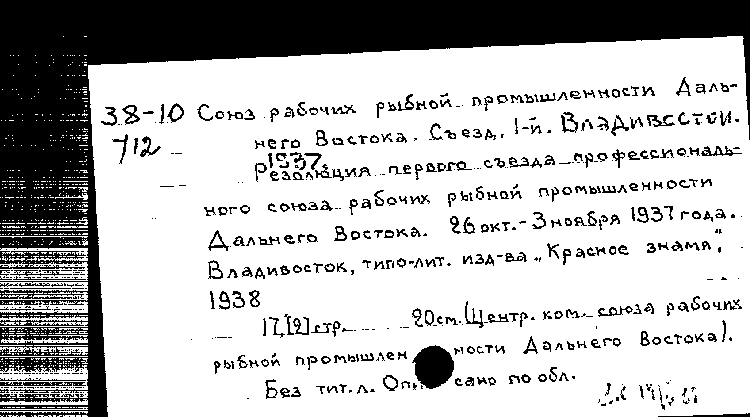 38-10 Союз рабочих рыбной промышленности Даль-
712 него Востока. Съезд, 1-й. Владивосток.
1937.
Резолюция первого съезда профессиональ-
ного союза рабочих рыбной промышленности
Дальнего Востока. 26 окт.-3 ноября 1937 года.
Владивосток, типо-лит. изд-ва „Красное знамя",
1938
17,[2] стр. 20 см. (Центр. ком. союза рабочих
рыбной промышленности Дальнего Востока).
Без тит. л. Описано по обл.